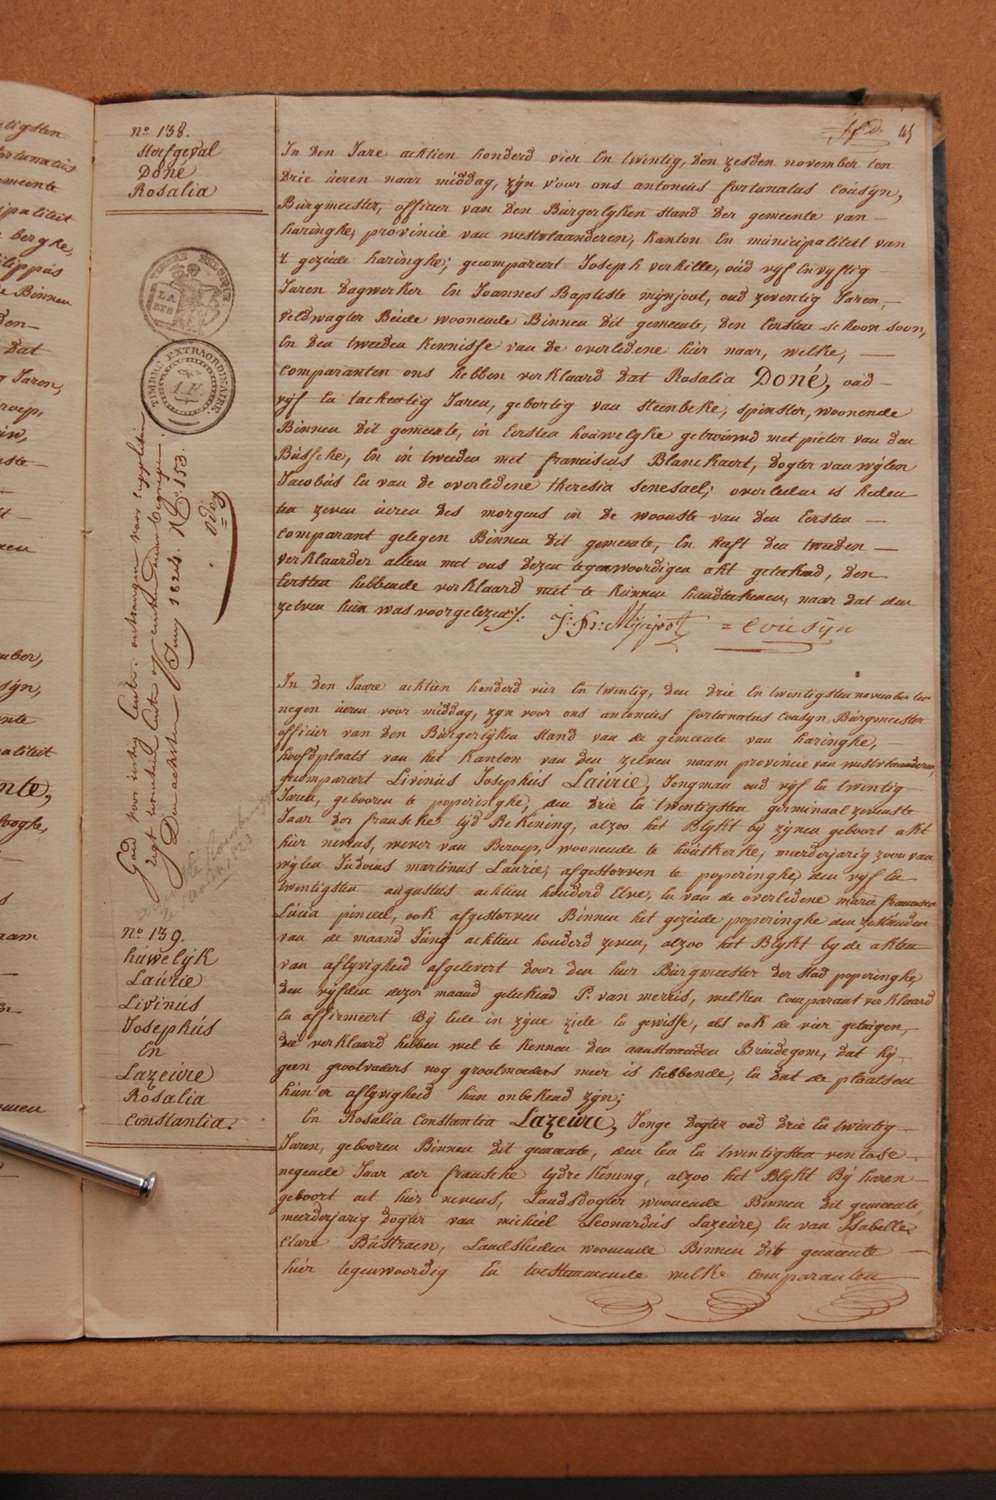 45
no 138.
sterfgeval
Doné
Rosalia
In den Jare achtien honderd vier en twintig, den zesden november ten
drie ueren naar middag, zijn voor ons antonius fortunatus cousyn,
Burgmeester, officier van den Burgerlyken stand der gemeente van
haringhe, provincie van westvlaanderen, kanton en municipaliteit van
't gezeide haringhe; gecompareert Joseph verhille, oud vijf en vyftig
Jaren dagwerker En Joannes Baptiste mijnjoot, oud zeventig Jaren
veldwagter Beide woonende Binnen dit gemeente, den Eersten schoon soon,
En den tweeden kennisse van de overledene hier naar, welke,
comparanten ons hebben verklaard dat Rosalia Doné, oud
vijf En tachentig Jaren, geboortig van Steenbeke, spinster, woonende
Binnen dit gemeente, in Eersten houwelyke getrouwd met pieter van den
Bussche, En in tweeden met franciscus Blanckaert, dogter van wijlen
Jacobus En van de overledene theresia senesael; overleden is heden
ten zeven ueren des morgens in de wooste van den Eersten
comparant gelegen Binnen dit gemeente, En heeft den tweeden
verklaarder alleen met ons dezen tegenwoordigen akt geteekend, den
Eersten hebbende verklaard niet te kunnen handteekenen, naar dat den
zelven hun was voorgelezen.
J: Bte: Mijnjoot = cousijn
TIMBRE EXTRAORDINAIRE
Goed voor
Den achsten Juny 1824 No 153.
no 139.
huwelijk
Laurie
Livinus
Josephus
En
Lazeure
Rosalia
Constantia.
In den Jaare achtien honderd vier En twintig, den drie En twintigsten november ten
negen ueren voor middag, zyn voor ons antonius fortunatus cousyn, Burgmeester
officier van den Burgerlijken stand van de gemeente van haringhe,
hoofdplaats van het kanton van den zelven naam provincie van westvlaanderen,
gecompareert Livinus Josephus Laurie, Jongman oud vijf En twintig
Jaren, gebooren te poperinghe, den drie En twintigsten germinaal zevenste
Jaar der fransche tijd Rekening, alzoo het Blykt bij zijnen geboort akt
hier nevens, wever van Beroep, woonende te houtkerke, meerderjarig zoon van
wijlen Judocus martinus Laurie, afgestorven te poperinghe den vijf En
twintigsten augustus achtien honderd Elve, En van de overledene marie francoise
Lucia pinceel, ook afgestorven Binnen het gezeide poperinghe den
van de maand Juny achtien honderd zeven, alzoo het Blykt by de akten
van aflyvigheid afgelevert door den heer Burgmeester der stad poperinghe,
den vijfden dezer maand geteekend P. van merris, welken comparant verklaard
En affirmeert Bij Eede in zijne ziele En gewisse, als ook de vier getuigen,
die verklaard hebben wel te kennen den aanstaanden Bruidegom, dat hy
geen grootvaders nog grootmoeders meer is hebbende, En dat de plaatsen
hun'er aflyvigheid hun onbekend zijn;
En Rosalia Constantia Lazeure, Jonge dogter oud drie En twintig
Jaren, gebooren Binnen dit gemeente, den Een En twintigsten ventose
negende Jaar der fransche tijdrekening, alzoo het Blykt Bij haren
geboort act hier nevens, Landsdogter woonende Binnen dit gemeente,
meerderjarig dogter van michiel Leonardus Lazeure, En van Isabelle
Clare Bustraen, Landslieden woonende Binnen dit gemeente
hier tegenwoordig En toestemmende welke comparanten